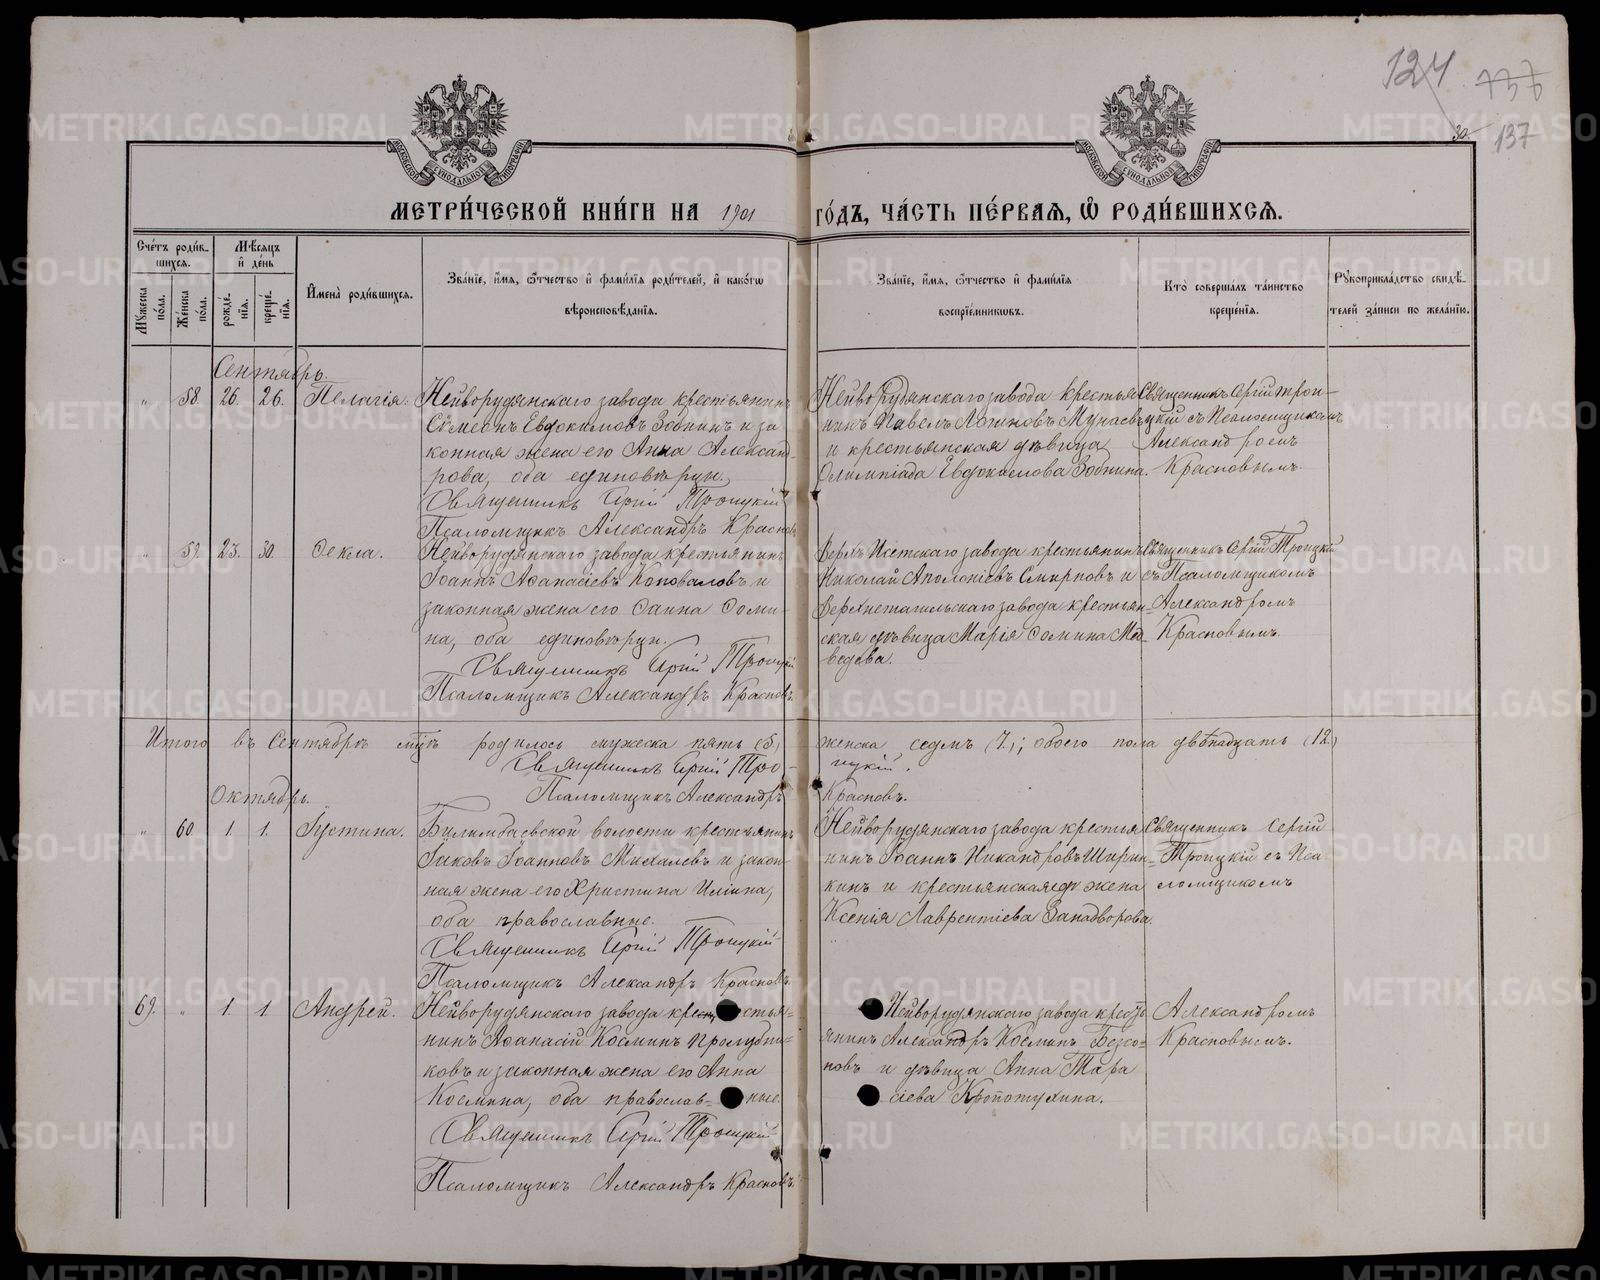 124
737
30.
137
МЕТРИ́ЧЕСКОЙ КНИ́ГИ НА 1901 ГО́ДЪ, ЧА́СТЬ ПЕ́РВАЯ, Ѡ РОДИ́ВШИХСЯ.
Сче́тъ роди́в-
шихся.
Мꙋ́жеска по́ла.
Же́нска по́ла.
Мѣ́сяцъ
и де́нь
рожде́-
нїя.
креще́-
нїя.
Имена̀ роди́вшихся.
Зва́нїе, и́мя, ѻ́тчество и фами́лїя роди́телей, и како́гѡ
вѣроисповѣ́данїя.
Зва́нїе, и́мя, ѻ́тчество и фами́лїя
воспрїе́мникѡвъ.
Кто̀ соверша́лъ та́инство
креще́нїя.
Рꙋкоприкла́дство свидѣ́-
телей за́писи по жела́нїю.
Сентябрь.
" 58. 26. 26. Пелагія.
Нейворудянскаго завода крестьянинъ
Сѵмеонъ Евдокимовъ Зобнинъ и за-
конная жена его Анна Александ-
рова, оба единовѣрцы.
Священникъ Сергій Троицкій
Псаломщикъ Александръ Красновъ
Нейворудянскаго завода крестья-
нинъ Павелъ Логиновъ
и крестьянская дѣвица
Олимпіада Евдокимова Зобнина.
Священникъ Сергій Трои-
цкій съ Псаломщикомъ
Александромъ
Красновымъ.
" 59. 23. 30. Ѳекла.
Нейворудянскаго завода крестьянинъ
Іоаннъ Аѳанасіевъ Коноваловъ и
законная жена его Ѳаина Ѳоми-
на, оба единовѣрцы.
Священникъ Сергій Троицкій
Псаломщикъ Александръ Красновъ.
Верхъ Исетскаго завода крестьянинъ
Николай Аполоніевъ Смирновъ и
Верхнетагильскаго завода крестьян-
ская дѣвица Марія Ѳомина Мед-
ведева.
Священникъ Сергій Троицкій
съ Псаломщикомъ
Александромъ
Красновымъ.
Итого въ Сентябрѣ м-цѣ родилось мужеска пять (5) женска седмь (7.); обоего пола двѣнадцать (12.)
Священникъ Сергій Трои-
цкій.
Псаломщикъ Александръ Красновъ.
Октябрь.
" 60. 1. 1. Іустина.
Билимбаевской волости крестьянинъ
Іаковъ Іоанновъ Михалевъ и закон-
ная жена его Христина Иліина,
оба православные.
Священникъ Сергій Троицкій
Псаломщикъ Александръ Красновъ.
Нейворудянскаго завода крестья-
нинъ Іоаннъ Никандровъ Ширин-
кинъ и крестьянская жена
Ксенія Лаврентіева Западворова.
Священникъ Сергій
Троицкій съ Пса-
ломщикомъ
69. " 1. 1. Андрей.
Нейворудянскаго завода крестья-
нинъ Аѳанасій Косминъ Пролубни-
ковъ и законная жена его Анна
Космина, оба православ-ные.
Священникъ Сергій Троицкій
Псаломщикъ Александръ Красновъ.
Нейворудянскаго завода кресть-
янинъ Александръ Косминъ Безсо-
новъ и дѣвица Анна Тара-
сіева Кропотухина.
Александромъ
Красновымъ.
METRIKI.GASO-URAL.RU